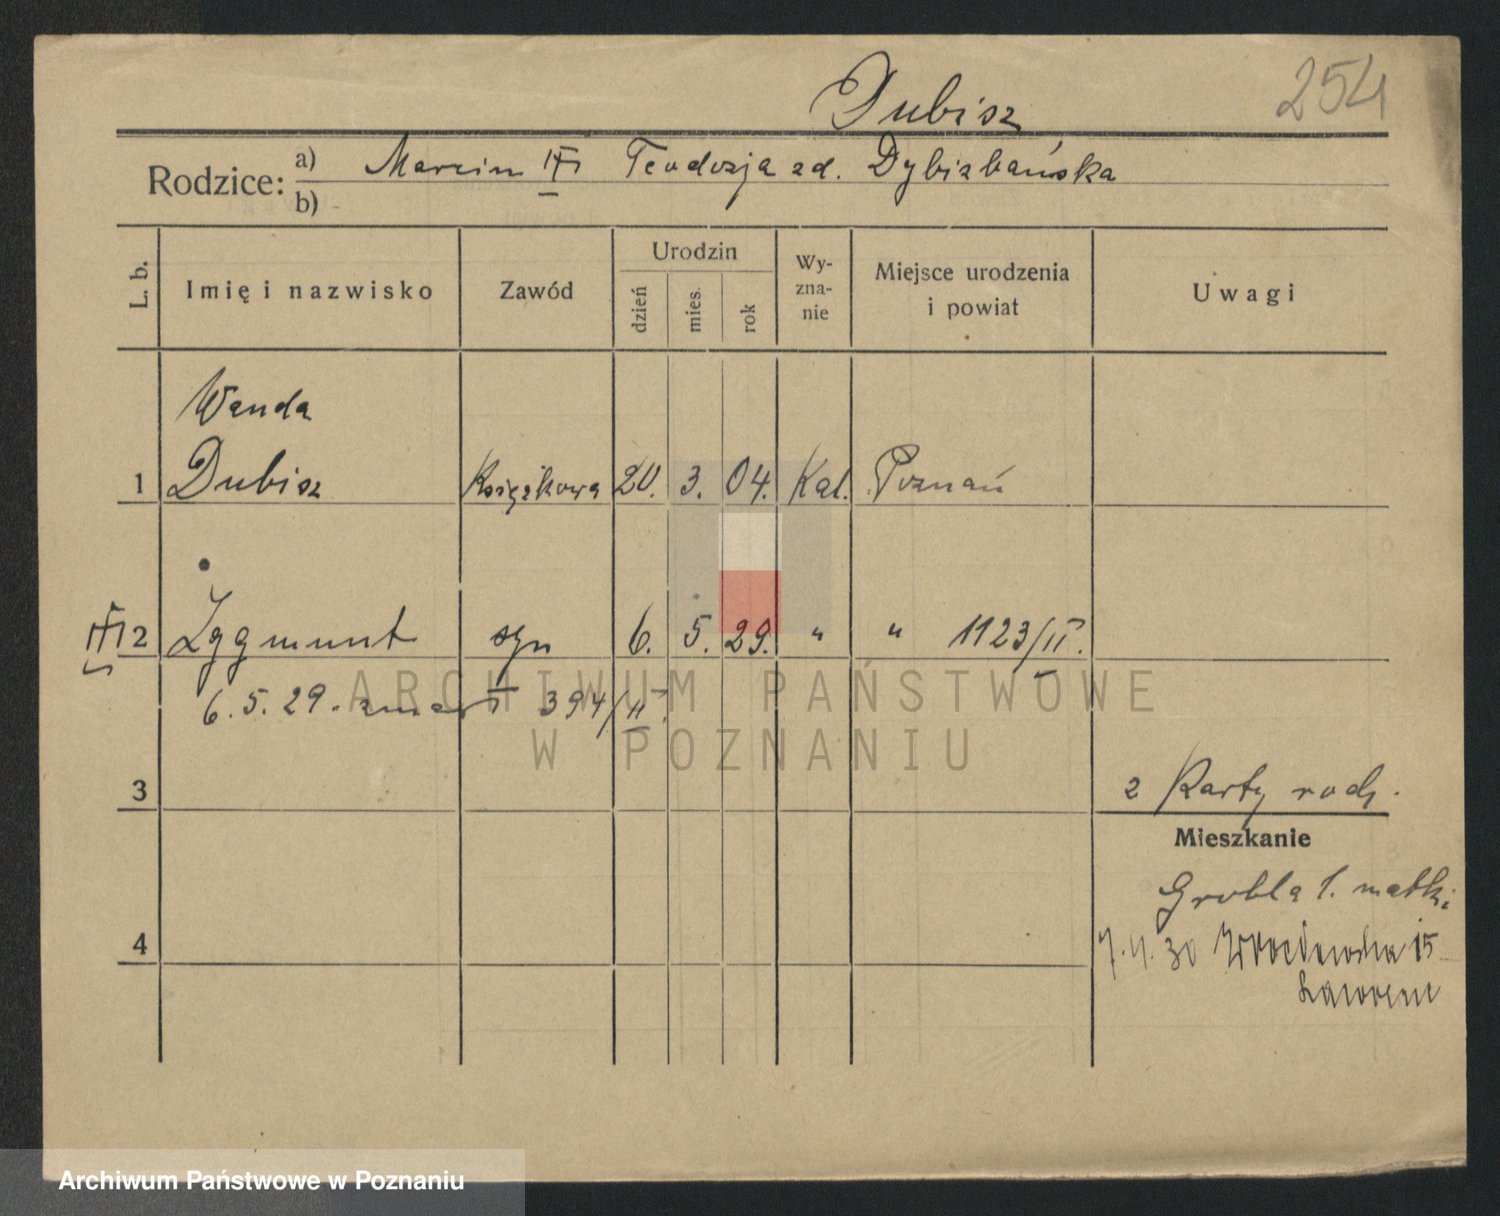 Dubisz 254
Rodzice: a) Marcin Teodozja zd. Dybizbańska
b)
L. b. Imię i nazwisko Zawód Urodzin dzień mies. rok Wy-zna-nie Miejsce urodzenia i powiat Uwagi
Wanda
1 Dubisz Książkowa 20. 3. 04. Kat. Poznań
2 Zygmunt syn 6. 5. 29. " " 1123/II.
6. 5. 29. zmarł 394/II.
ARCHIWUM PAŃSTWOWE
W POZNANIU
3
2 Karty rodz.
Mieszkanie
Grobla 1. matki
4
7. 4. 30 15
Archiwum Państwowe w Poznaniu